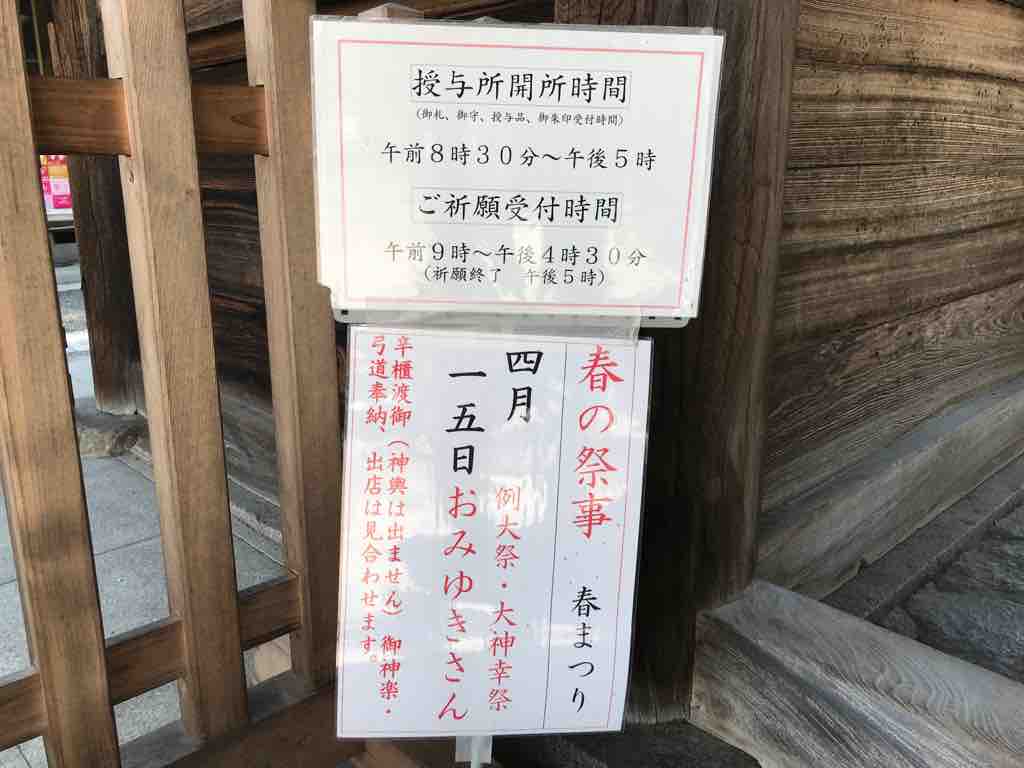 授与所開所時間
（御札、御守、授与品、御朱印受付時間）
午前８時３０分～午後５時
ご祈願受付時間
午前９時～午後４時３０分
（祈願終了　午後５時）
春の祭事　春まつり
四月
例大祭・大神幸祭
一五日おみゆきさん
辛櫃渡御（神輿は出ません）御神楽・
弓道奉納、出店は見合わせます。